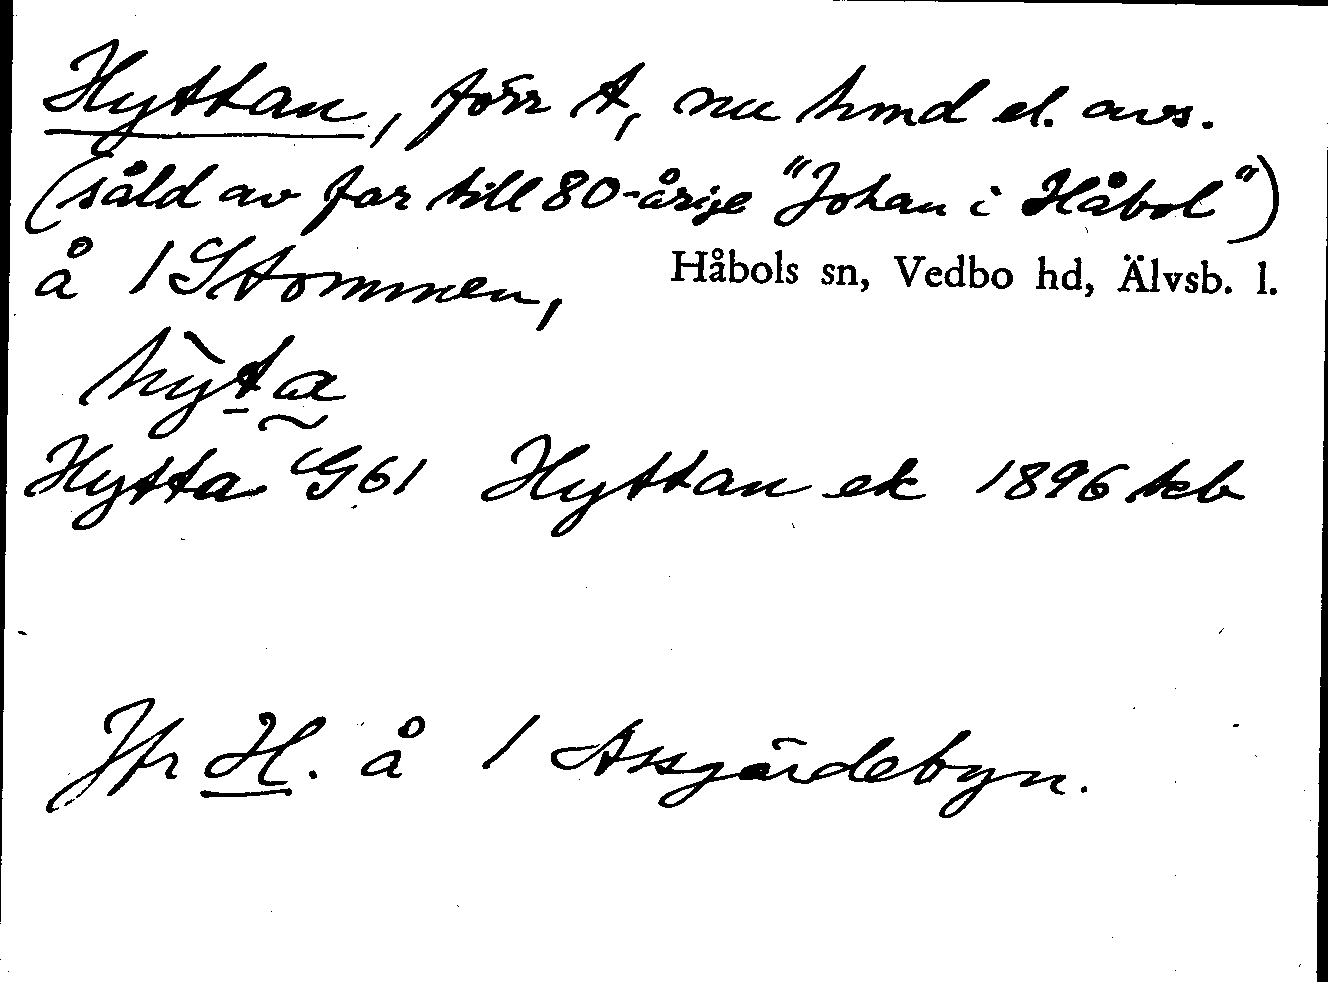 Hyttan, förr t, nu hmd el. avs.
(såld av far till 80-årige "Johan i Håbol")
å 1 Stommen, Håbols sn, Vedbo hd, Älvsb. l.
hỳta
Hytta G61 Hyttan ek 1896 kb
Jfr H. å 1 Assgärdebyn.